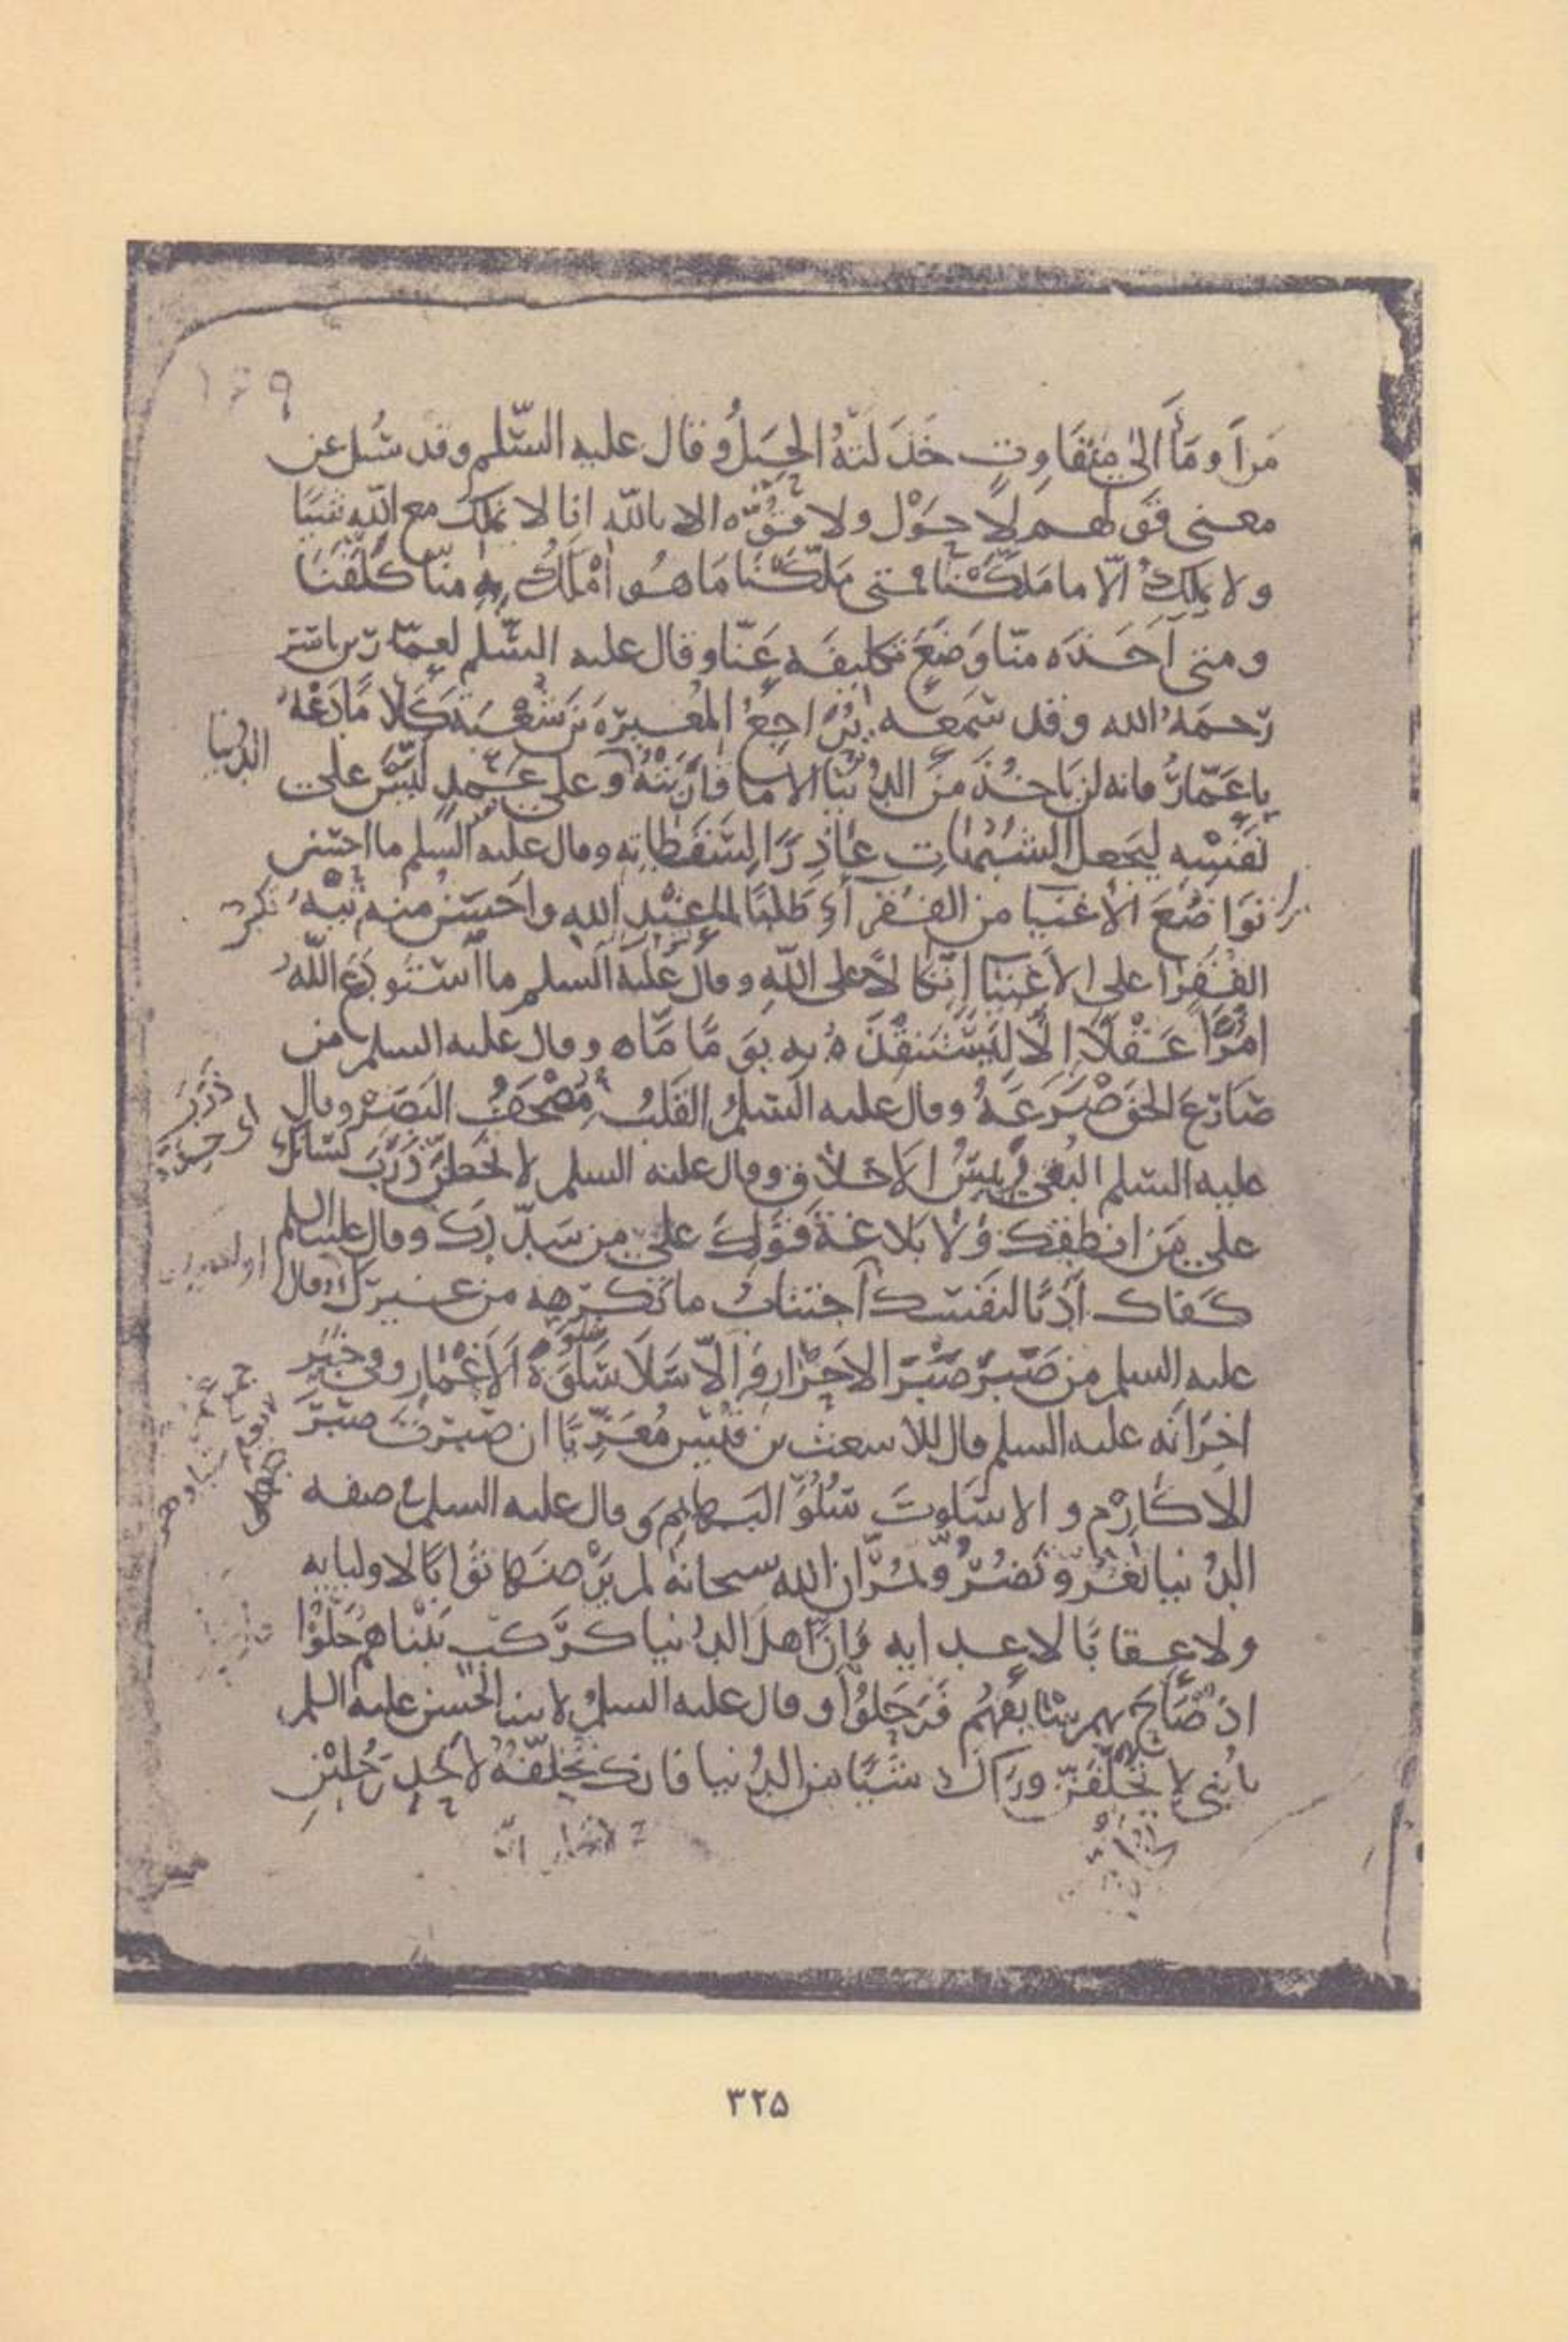 ١٤٩
مَن اَومَأَ الىٰ مُتَفَاوِتٍ خَذَلَتْهُ الحِيَلُ وقال عليه السّلم وقد سُئل عن
معنى قولهم لا حَوْل ولا قُوّه الا بالله انا لا نملك مع الله شيئا
ولا نملِكُ الّا ما مَلّكَنا فمتى مَلّكَنَا مَا هُو اَمْلَكُ به منّا كَلَّفَنَا
ومتى اَخَذَه منّا وَضَعَ تكليفَه عَنّا وقال عليه السّلم لعمّار بن ياسر
رحمَهُ الله وقد سَمعه يُرَاجِعُ المُغيرَه بنَ شُعْبَةَ كَلَامًا دَعْهُ
يا عَمّارُ فانه لن يَاخُذَ مِنَ الدُّنيَا الا مَا قَارَبَتْهُ وعلى عَمْدٍ لَبَّسَ على
الدين الدنيا
نَفْسِه ليَجعلَ الشُبُهَاتِ عَاذِرًا لِسَقَطَاتِه وقال عليه السلم ما احسن
تَوَاضُعَ الاَغنيا من الفُقَرآءِ طَلَبًا لما عِنْدَ الله واَحسَنُ منه تِيْهُ
الفُقَرا على الاَغْنِيَا اتِّكَالًا على اللهِ وقال عليه السلم ما اَسْتَودَعَ اللهُ
امْرَأً عَقْلًا اِلّا لِيَسْتَنقِذَهُ به يَومًا مَّا وقال عليه السلم من
صَارَعَ الحَقَ صَرَعَهُ وقال عليه السلم القَلبُ مُصْحَفُ البَصَرِ وقال
ذَرَبَ
اى حِدّة
عليه السلم التُقى رَئيسُ الاَخلاقِ وقال عليه السلم لا تجعلَنّ ذَرَبَ لسَانِك
على مَن انطقك ولا بَلاغةَ قَوْلِكَ على من سَدّدَك وقال عليه السلم
كفاك اَدَبًا لنفسك اَجتنابُ ما تَكرَهه من غيرك وقال
عليه السلم من صَبَرَ صَبْرَ الاَحْرَارِ والّا سَلَا سُلُوَّ الاَغْمَار وفى خَبَر
اخَرَ انّه عليه السلم قال للاشعث بن قيس مُعَزّيًا ان صَبَرتَ صَبْرَ
الاَكَارِم والا سَلوتَ سُلُوَّ البَهائِمِ وقال عليه السلم فى صفه
الدُنيا تَغُرُّ وتَضُرُّ وتَمُرُّ ان الله سبحانه لم يَرْضَها ثَوَابًا لاوليايه
ولا عِقابًا لاعدايه وَاِنَّ اَهلَ الدُنيا كَرَكْبٍ بَيْنَاهُمْ حَلُّوْا
اذ صَاحَ بهم سَائقُهُم فَرَحَلُوْا وقال عليه السلم لابنه الحَسَن عليه السلم
يا بُنَى لا تُخَلِّفَنّ ورَاك شيئا من الدُنيا فانك تُخلِّفُهُ لاَحدِ رَجُلَيْن
٣٢٥